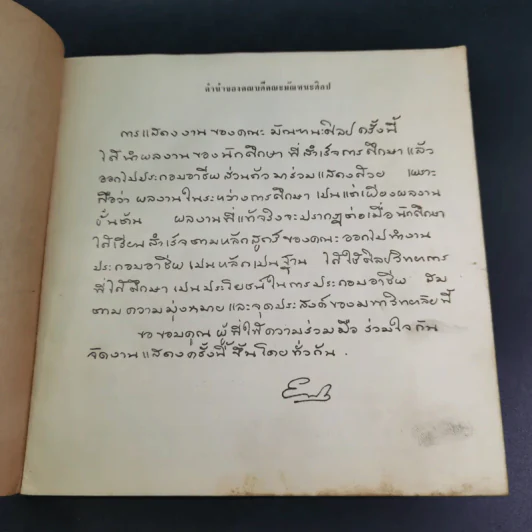 คำนำของคณบดีคณะมัณฑนศิลป
การแสดงงานของคณะมัณฑนะศิลปครั้งนี้
ได้นำผลงานของนักศึกษาที่สำเร็จการศึกษาแล้ว
ออกไปประกอบอาชีพส่วนตัวมาร่วมแสดงด้วย เพราะ
ถือว่าผลงานในระหว่างการศึกษาเป็นแต่เพียงผลงาน
ขั้นต้น ผลงานที่แท้จริงจะปรากฏต่อเมื่อนักศึกษา
ได้เรียนสำเร็จตามหลักสูตร์ของคณะออกไปทำงาน
ประกอบอาชีพเป็นหลักเป็นฐาน ได้ใช้ศิลปวิทยาการ
ที่ได้ศึกษาเป็นประโยชน์ในการประกอบอาชีพ สม
ตามความมุ่งหมายและจุดประสงค์ของมหาวิทยาลัยนี้
ขอขอบคุณผู้ที่ให้ความร่วมมือร่วมใจกัน
จัดงานแสดงครั้งนี้ขึ้นโดยทั่วกัน.